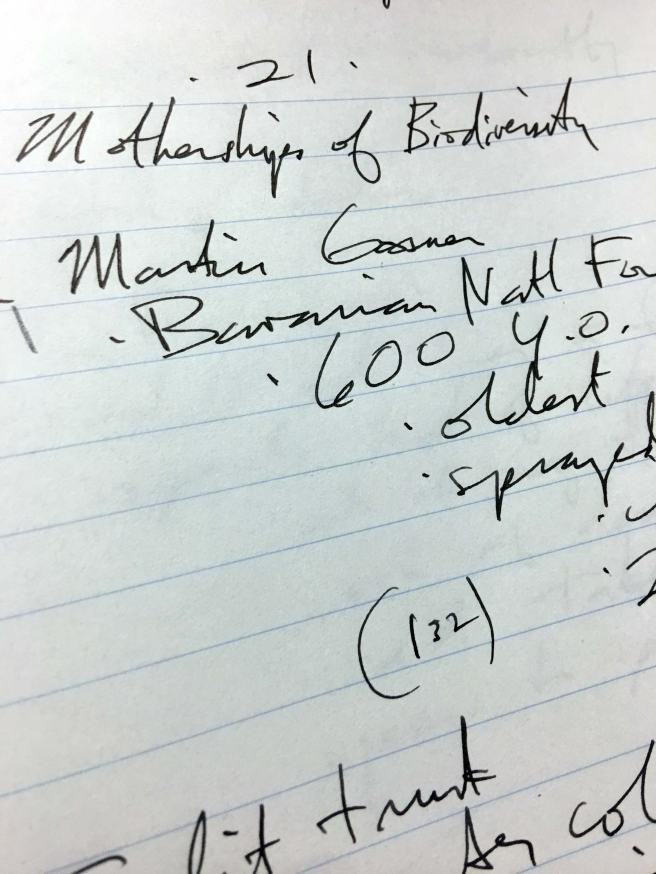 . 21 .
Motherships of Biodiversity
Martin Gossner
· Bavarian Natl Fo
· 600 y.o.
· oldest
· sprayed
(132)
trunk